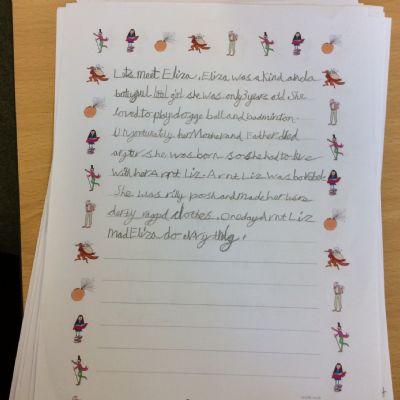 Lets meet Eliza. Eliza was a kind and a
girl she was only 3 years old. She
loved to play dogge ball and badminton.
Unfortunatly her Mother and Father died
after she was born so she had to live
with her Arnt Liz. Arnt Liz was
She was rilly posh and made her were
derty ragged clothes. One day Arnt Liz
mad Eliza do